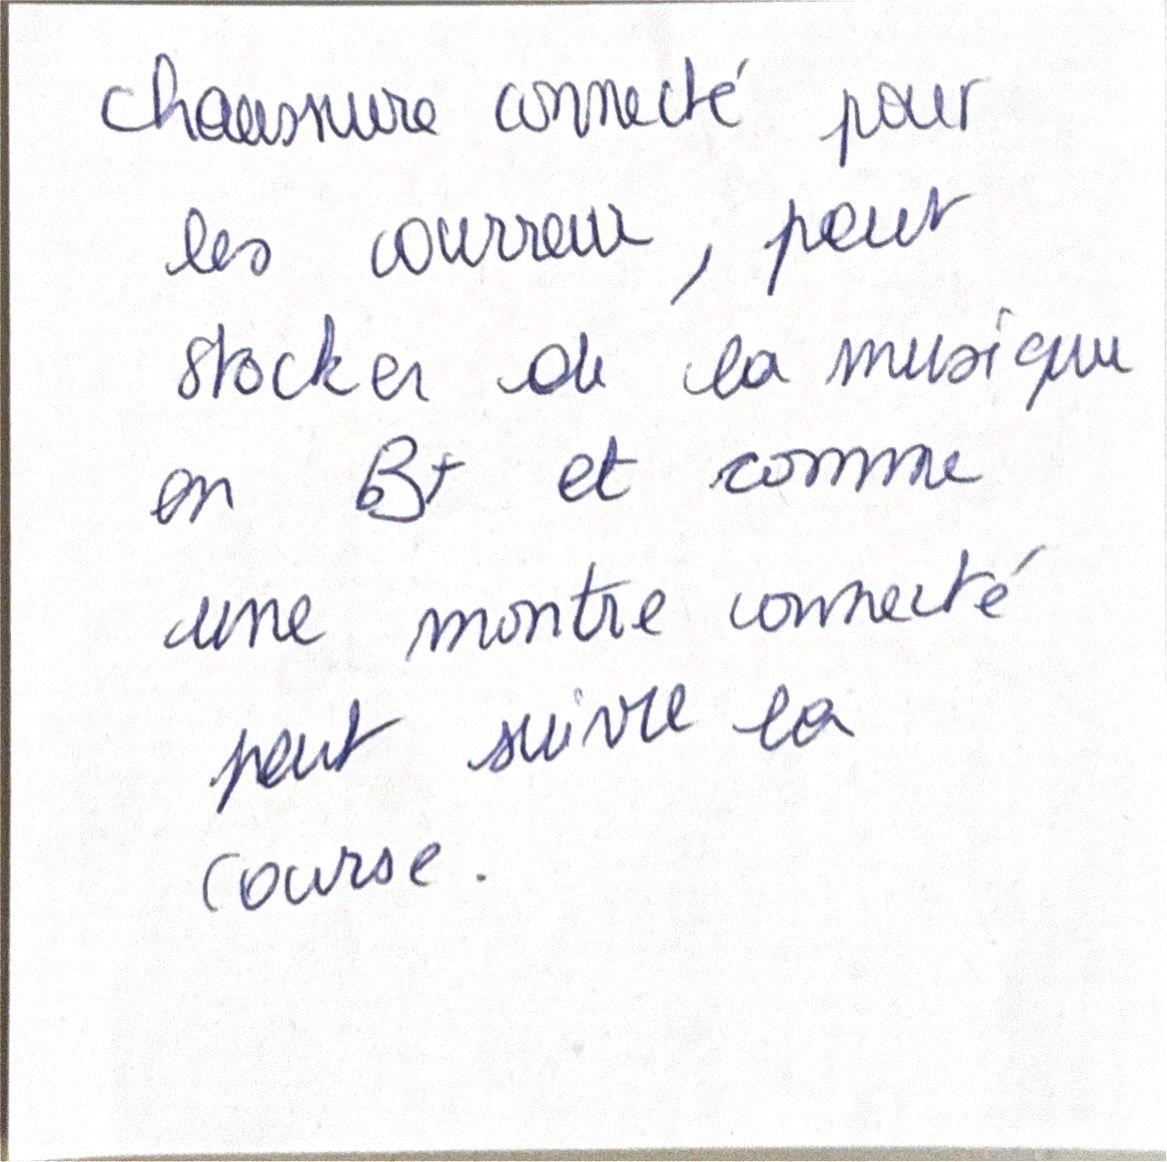 chaussure connecté pour
les courreur, peut
stocker de la musique
en Bt et comme
une montre connecté
peut suivre la
course.